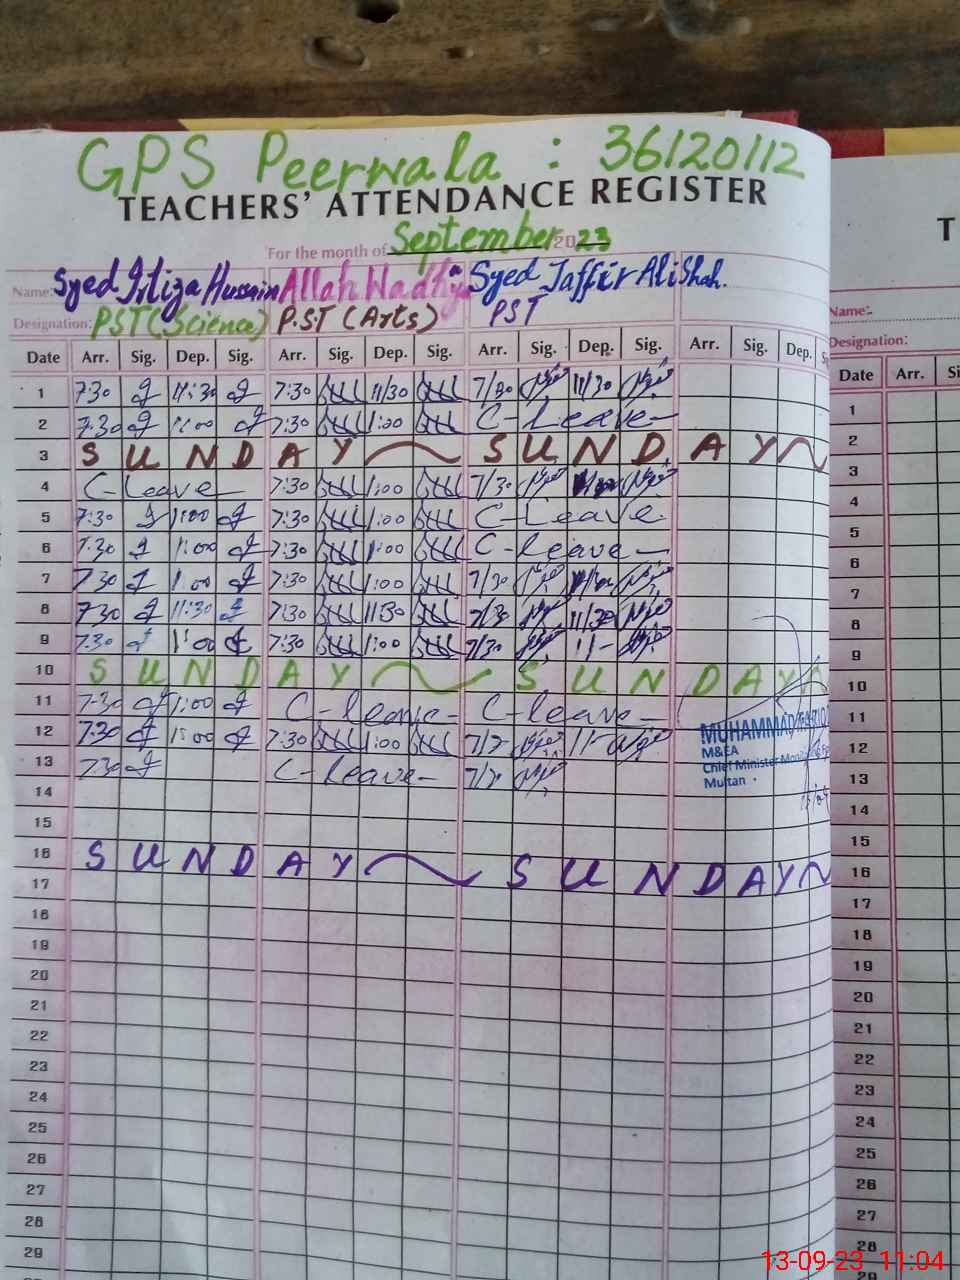 GPS Peerwala : 36120112
TEACHERS' ATTENDANCE REGISTER
For the month of September 2023
Name: Syed Irtiza Hussain Allah Wadhya Syed Jaffir Ali Shah.
Designation: PST (Science) P.S.T (Arts) PST
Date Arr. Sig. Dep. Sig. Arr. Sig. Dep. Sig. Arr. Sig. Dep. Sig. Arr. Sig. Dep.
1 7:30 11:30 7:30 11/30 7/30 11/30
2 7:30 1:00 7:30 1:00 C-Leave-
3 SUNDAY SUNDAY
4 C-Leave 7:30 1:00 7/30
5 7:30 1:00 7:30 1:00 C-Leave
6 7:30 1:00 7:30 1:00 C-leave-
7 730 1:00 7:30 1:00 7/30
8 730 11:30 7:30 11:30 7/30 11/30
9 7:30 1:00 7:30 1:00 7/30 11-
10 SUNDAY SUNDAY
11 7:30 1:00 C-leave- C-leave-
12 7:30 1:00 7:30 1:00
13 7:30 C-leave-
14
15
16 SUNDAY SUNDAY
17
18
19
20
21
22
23
24
25
26
27
28
29
MUHAMMAD
M&EA
Chief Minister
Multan
T
Name:-
Designation:
Date Arr.
1
2
3
4
5
6
7
8
9
10
11
12
13
14
15
16
17
18
19
20
21
22
23
24
25
26
27
28
29
13-09-23 11:04